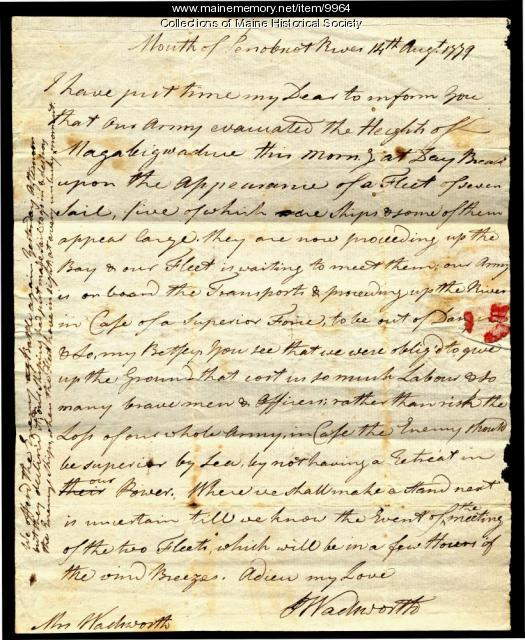 www.mainememory.net/item/9964
Collections of Maine Historical Society
Mouth of Penobscot River 14th Augt. 1779
I have just time my Dear to inform You
that our Army evacuated the Heights of
Magabigwaduce this Morng. at Day Break
upon the Appearance of a Fleet of seven
Sail, five of which are Ships & some of them
appear large, they are now proceeding up the
Bay & our Fleet is waiting to meet them; our Army
is on board the Transports & proceeding up the River
in Case of a Superior Force, to be out of
& So, my Betsey You see that we were oblig'd to give
up the Ground that cost us so much Labour & so
many brave men & Officers; rather than risk the
Loss of our whole Army, in Case the Enemy should
be superior by Sea, by not having a Retreat in
their our Power. Where we shall make a Stand next
is uncertain till we know the Event of the meeting
of the two Fleets, which will be in a few Hours if
the wind Breezes. Adieu my Love
PWadsworth
Mrs Wadsworth
We offerd the Enemy a Battle again Yesterday Afternoon
but they declind it
the Enemys ships when the Fleet hove in sight at a very unlucky moment